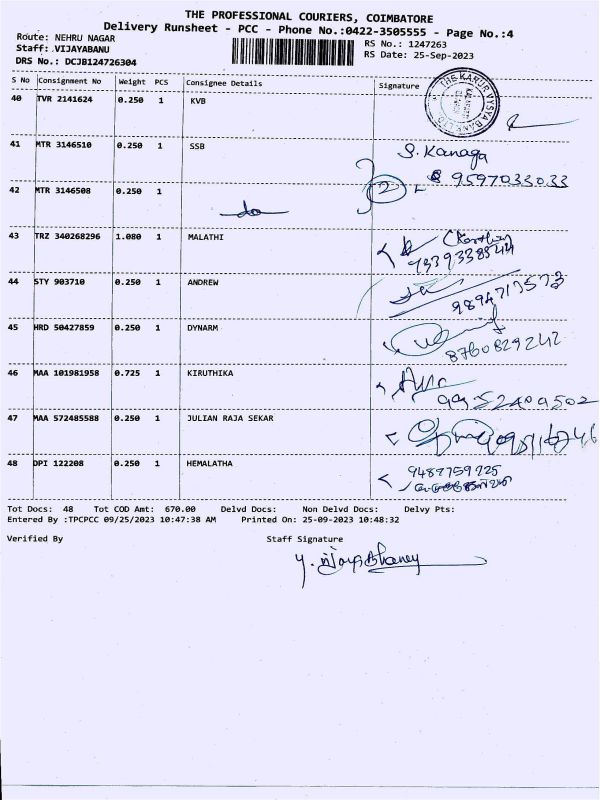 THE PROFESSIONAL COURIERS, COIMBATORE
Delivery Runsheet - PCC - Phone No.:0422-3505555 - Page No.:4
Route: NEHRU NAGAR
RS No.: 1247263
Staff: VIJAYABANU
RS Date: 25-Sep-2023
DRS No.: DCJB124726304
S No Consignment No Weight PCS Consignee Details Signature
THE KARUR VYSYA BANK LTD
40 TVR 2141624 0.250 1 KVB
41 MTR 3146510 0.250 1 SSB S. Kanaga
9597033033
42 MTR 3146508 0.250 1 do 2
43 TRZ 340268296 1.080 1 MALATHI
44 STY 903710 0.250 1 ANDREW
9894713573
45 HRD 50427859 0.250 1 DYNARM
8760829242
46 MAA 101981958 0.725 1 KIRUTHIKA
9952409502
47 MAA 572485588 0.250 1 JULIAN RAJA SEKAR
48 DPI 122208 0.250 1 HEMALATHA 9487759225
Tot Docs: 48 Tot COD Amt: 670.00 Delvd Docs: Non Delvd Docs: Delvy Pts:
Entered By :TPCPCC 09/25/2023 10:47:38 AM Printed On: 25-09-2023 10:48:32
Verified By Staff Signature